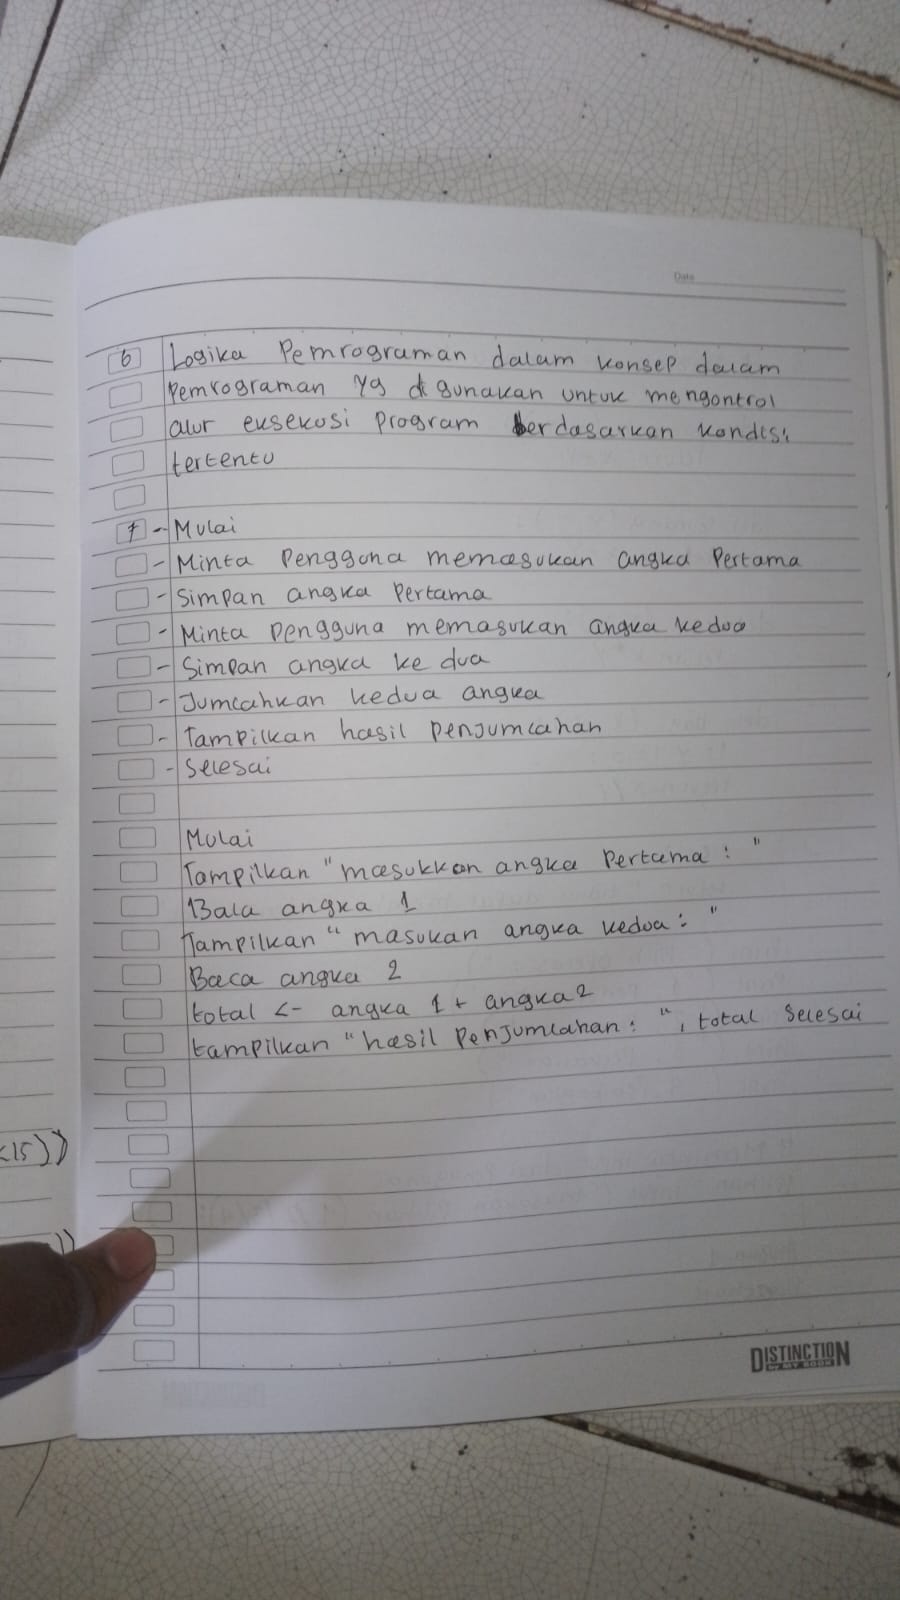 Date
6 Logika Pemrograman dalam konsep dalam
Pemrograman yg di gunakan untuk mengontrol
alur eksekusi program berdasarkan kondisi
tertentu
7 - Mulai
- Minta Pengguna memasukan angka Pertama
- Simpan angka Pertama
- Minta Pengguna memasukan angka kedua
- Simpan angka ke dua
- Jumlahkan kedua angka
- Tampilkan hasil Penjumlahan
- Selesai
Mulai
Tampilkan "masukkan angka Pertama : "
Baca angka 1
Tampilkan " masukan angka kedua : "
Baca angka 2
total <- angka 1 + angka 2
tampilkan "hasil Penjumlahan : ", total Selesai
<15))
))
DISTINCTION
by MY BOOK